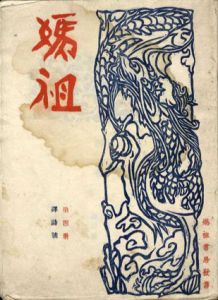 媽祖
第四册
譯詩號
媽祖書房發壽